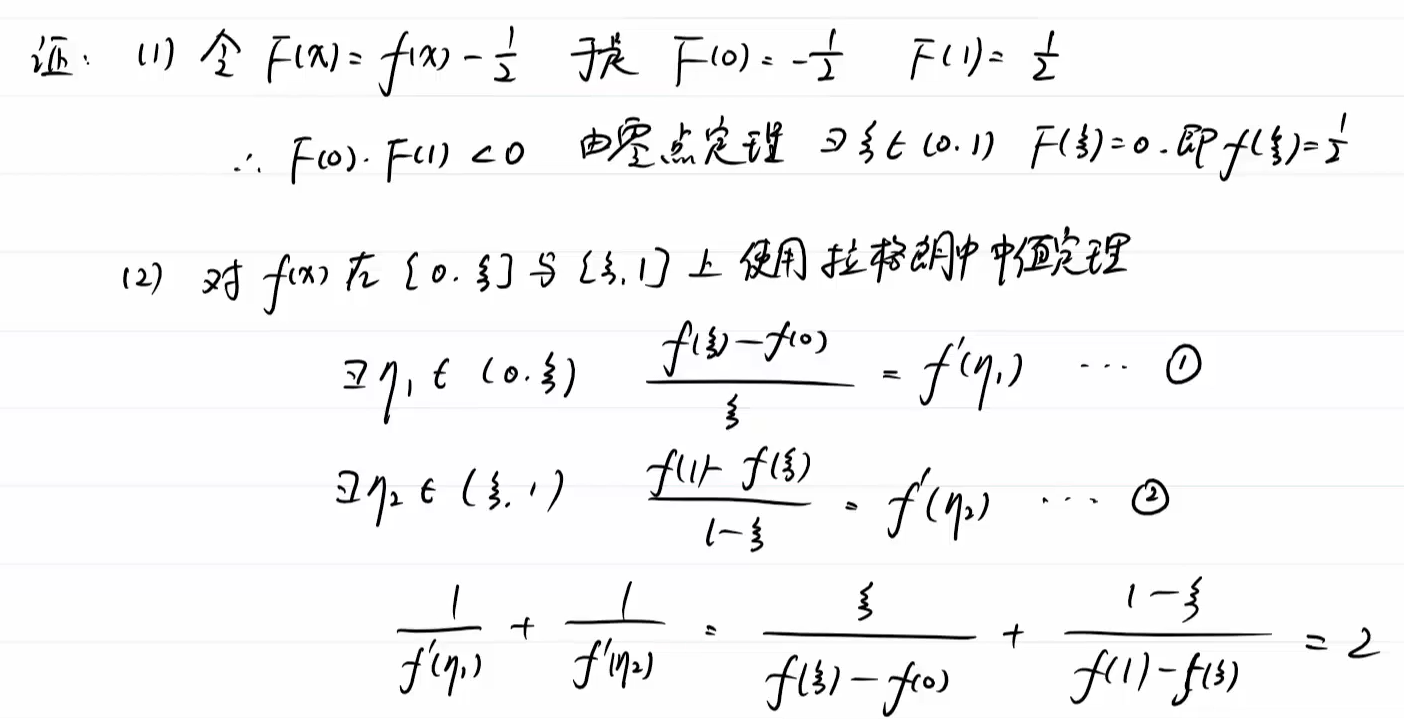 证: (1) 令 F(x) = f(x) - 1/2 于是 F(0) = -1/2 F(1) = 1/2
∴ F(0)·F(1) < 0 由零点定理 ∃ξ∈(0.1) F(ξ)=0.即f(ξ)=1/2
(2) 对 f(x) 在 [0.ξ] 与 [ξ,1] 上 使用拉格朗中中值定理
∃η₁∈(0.ξ) (f(ξ)-f(0))/ξ = f'(η₁) ··· ①
∃η₂∈(ξ.1) (f(1)-f(ξ))/(1-ξ) = f'(η₂) ··· ②
1/f'(η₁) + 1/f'(η₂) = ξ/(f(ξ)-f(0)) + (1-ξ)/(f(1)-f(ξ)) = 2